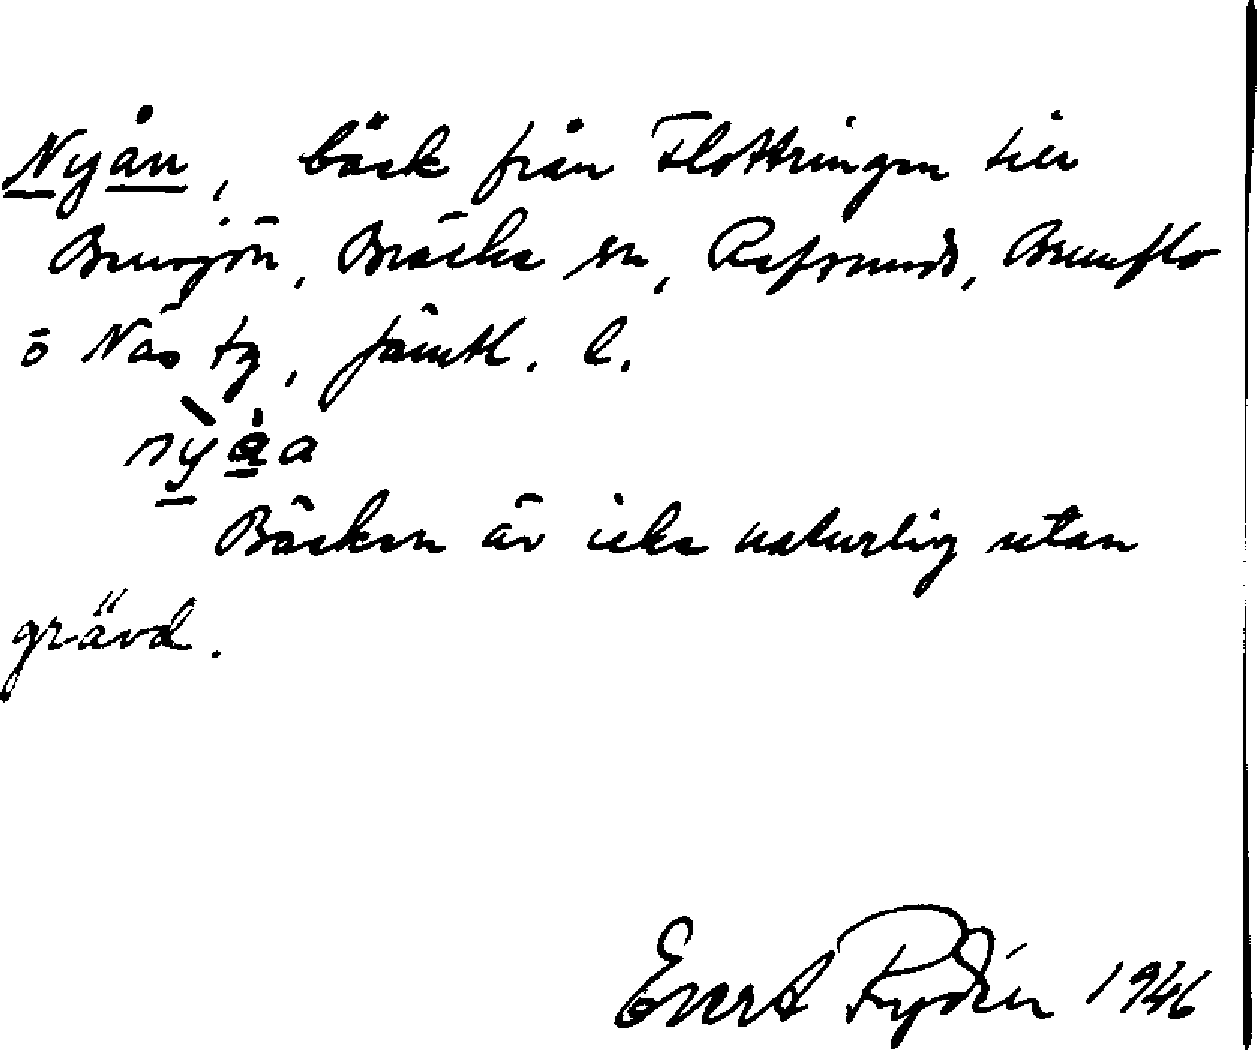 Nyån, bäck från Flottringen till
Brunsjön, Bräcke sn, Refsunds, Brunflo
o Näs tg, Jämtl. l.
Bäcken är icke naturlig utan
grävd.
Evert Rydén 1946